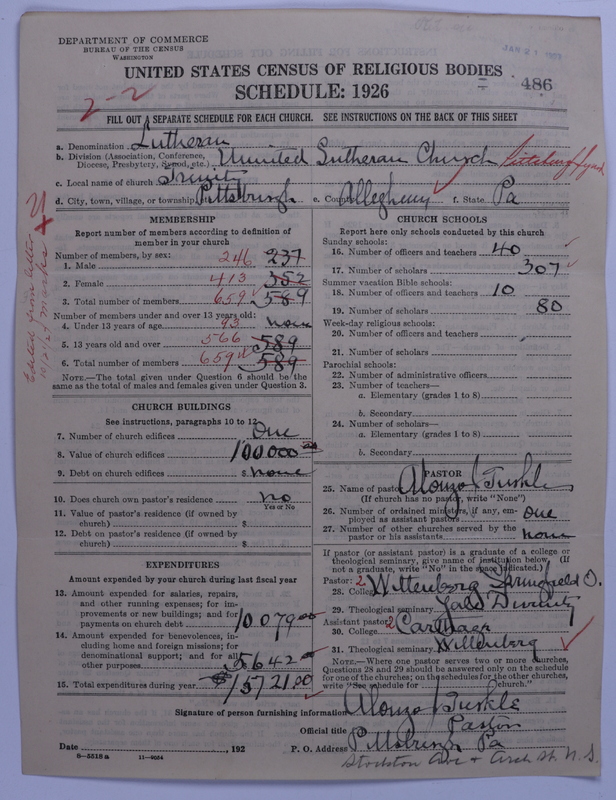 DEPARTMENT OF COMMERCE
BUREAU OF THE CENSUS
WASHINGTON
UNITED STATES CENSUS OF RELIGIOUS BODIES
SCHEDULE: 1926
486
2-2
FILL OUT A SEPARATE SCHEDULE FOR EACH CHURCH. SEE INSTRUCTIONS ON THE BACK OF THIS SHEET
a. Denomination Lutheran
b. Division (Association, Conference, Diocese, Presbytery, Synod, etc.) United Lutheran Church Pittsburgh Synod
c. Local name of church Trinity
d. City, town, village, or township Pittsburgh e. County Allegheny f. State Pa
MEMBERSHIP
Report number of members according to definition of
member in your church
Number of members, by sex:
1. Male 246 237
2. Female 413 352
3. Total number of members 659 589
Number of members under and over 13 years old:
4. Under 13 years of age 93 none
5. 13 years old and over 566 589
6. Total number of members 659 589
NOTE.—The total given under Question 6 should be the
same as the total of males and females given under Question 3.
CHURCH BUILDINGS
See instructions, paragraphs 10 to 12
7. Number of church edifices One
8. Value of church edifices 100,000
9. Debt on church edifices $ none
10. Does church own pastor's residence No
Yes or No
11. Value of pastor's residence (if owned by
church) $
12. Debt on pastor's residence (if owned by
church) $
EXPENDITURES
Amount expended by your church during last fiscal year
13. Amount expended for salaries, repairs,
and other running expenses; for im-
provements or new buildings; and for
payments on church debt 10,079.00
14. Amount expended for benevolences, in-
cluding home and foreign missions; for
denominational support; and for all
other purposes 5642.00
15. Total expenditures during year 15721.00
CHURCH SCHOOLS
Report here only schools conducted by this church
Sunday schools:
16. Number of officers and teachers 40
17. Number of scholars 307
Summer vacation Bible schools:
18. Number of officers and teachers 10
19. Number of scholars 80
Week-day religious schools:
20. Number of officers and teachers
21. Number of scholars
Parochial schools:
22. Number of administrative officers
23. Number of teachers—
a. Elementary (grades 1 to 8)
b. Secondary
24. Number of scholars—
a. Elementary (grades 1 to 8)
b. Secondary
PASTOR
25. Name of pastor Alonzo J Turkle
(If church has no pastor, write "None")
26. Number of ordained ministers, if any, em-
ployed as assistant pastors One
27. Number of other churches served by the
pastor or his assistants none
If pastor (or assistant pastor) is a graduate of a college or
theological seminary, give name of institution below. (If
not a graduate, write "No" in the space indicated.)
Pastor: 2
28. College Wittenberg Springfield O.
29. Theological seminary Yale Divinity
Assistant pastor: 2
30. College Carthage
31. Theological seminary Wittenberg
NOTE.—Where one pastor serves two or more churches,
Questions 28 and 29 should be answered only on the schedule
for one of the churches; on the schedules for the other churches,
write "See schedule for church."
Signature of person furnishing information Alonzo J Turkle
Official title Pastor
Date , 192 P. O. Address Pittsburgh Pa
8-5318a 11-9034
Stockton Ave + Arch St. N. S.